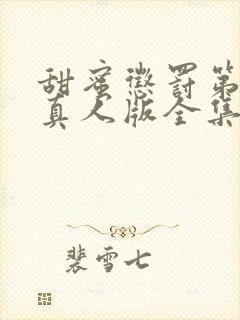 甜蜜惩罚第
真人版全集
裴雪七